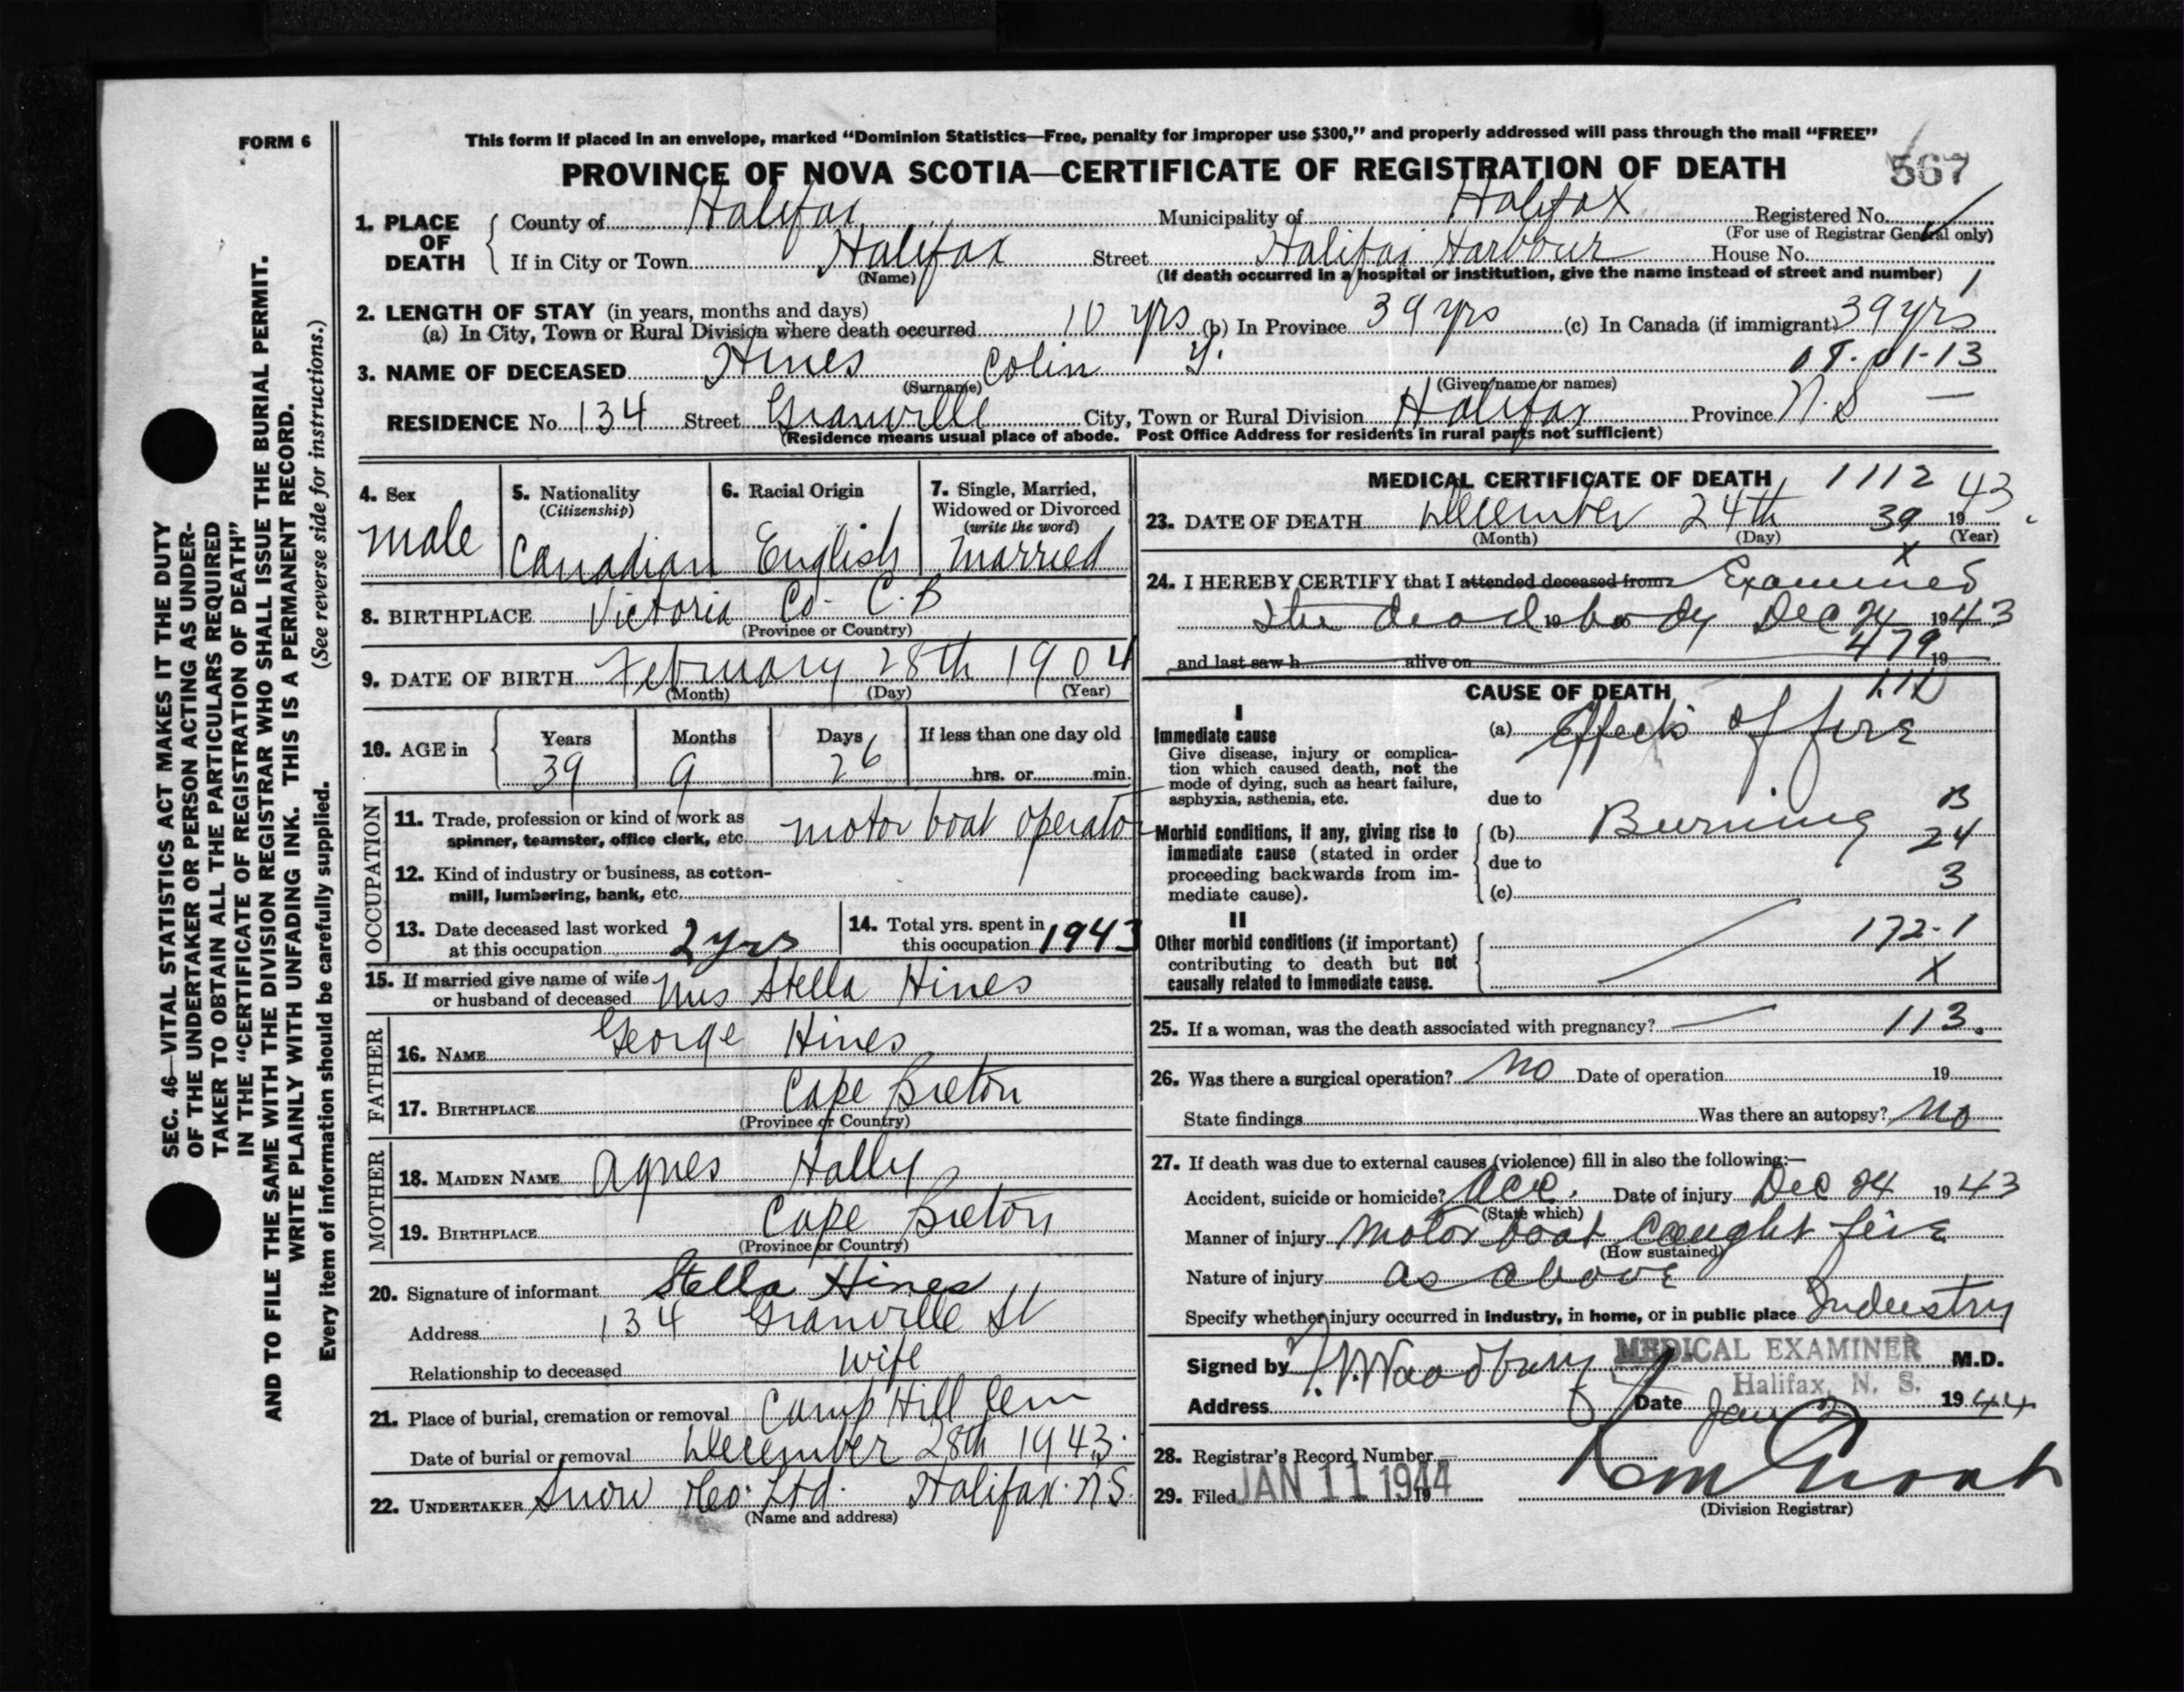 FORM 6
This form if placed in an envelope, marked “Dominion Statistics—Free, penalty for improper use $300,” and properly addressed will pass through the mail “FREE”
PROVINCE OF NOVA SCOTIA—CERTIFICATE OF REGISTRATION OF DEATH
567
1. PLACE OF DEATH
County of Halifax Municipality of Halifax Registered No.
(For use of Registrar General only)
If in City or Town Halifax Street Halifax Harbour House No.
(Name) (If death occurred in a hospital or institution, give the name instead of street and number) 1
2. LENGTH OF STAY (in years, months and days)
(a) In City, Town or Rural Division where death occurred 10 yrs (b) In Province 39 yrs (c) In Canada (if immigrant) 39 yrs
3. NAME OF DECEASED Hines Colin 01-13
(Surname) (Given name or names)
RESIDENCE No. 134 Street Granville City, Town or Rural Division Halifax Province N.S —
(Residence means usual place of abode. Post Office Address for residents in rural parts not sufficient)
4. Sex
male
5. Nationality
(Citizenship)
Canadian
6. Racial Origin
English
7. Single, Married,
Widowed or Divorced
(write the word)
married
8. BIRTHPLACE Victoria Co- C.B
(Province or Country)
9. DATE OF BIRTH February 28th 1904
(Month) (Day) (Year)
10. AGE in
Years Months Days If less than one day old
39 9 26 hrs. or min.
OCCUPATION
11. Trade, profession or kind of work as
spinner, teamster, office clerk, etc. motor boat operator
12. Kind of industry or business, as cotton-
mill, lumbering, bank, etc.
13. Date deceased last worked
at this occupation 2 yrs
14. Total yrs. spent in
this occupation 1943
15. If married give name of wife
or husband of deceased Mrs Stella Hines
FATHER
16. NAME George Hines
17. BIRTHPLACE Cape Breton
(Province or Country)
MOTHER
18. MAIDEN NAME Agnes Hally
19. BIRTHPLACE Cape Breton
(Province or Country)
20. Signature of informant Stella Hines
Address 134 Granville St
Relationship to deceased wife
21. Place of burial, cremation or removal Camp Hill Cem
Date of burial or removal December 28th 1943.
22. UNDERTAKER Snow Co. Ltd. Halifax. N.S.
(Name and address)
MEDICAL CERTIFICATE OF DEATH 1112
23. DATE OF DEATH December 24th 39 1943
(Month) (Day) (Year)
X
24. I HEREBY CERTIFY that I attended deceased from Examined
the dead body Dec 24 1943
479
and last saw h alive on 19
CAUSE OF DEATH
I
Immediate cause
Give disease, injury or complica-
tion which caused death, not the
mode of dying, such as heart failure,
asphyxia, asthenia, etc.
(a) Effects of fire
due to
B
Morbid conditions, if any, giving rise to
immediate cause (stated in order
proceeding backwards from im-
mediate cause).
(b) Burning 24
due to
(c) 3
II
Other morbid conditions (if important)
contributing to death but not
causally related to immediate cause.
172-1
X
25. If a woman, was the death associated with pregnancy? — 113.
26. Was there a surgical operation? No Date of operation 19
State findings Was there an autopsy? No
27. If death was due to external causes (violence) fill in also the following:—
Accident, suicide or homicide? Acc. Date of injury Dec 24 1943
(State which)
Manner of injury Motor boat caught fire
(How sustained)
Nature of injury as above
Specify whether injury occurred in industry, in home, or in public place Industry
Signed by Woodbury MEDICAL EXAMINER M.D.
Halifax, N. S.
Address Date Jan 2 1944
28. Registrar's Record Number
29. Filed JAN 11 1944 19
(Division Registrar)
SEC. 46—VITAL STATISTICS ACT MAKES IT THE DUTY
OF THE UNDERTAKER OR PERSON ACTING AS UNDER-
TAKER TO OBTAIN ALL THE PARTICULARS REQUIRED
IN THE “CERTIFICATE OF REGISTRATION OF DEATH”
AND TO FILE THE SAME WITH THE DIVISION REGISTRAR WHO SHALL ISSUE THE BURIAL PERMIT.
WRITE PLAINLY WITH UNFADING INK. THIS IS A PERMANENT RECORD.
(See reverse side for instructions.)
Every item of information should be carefully supplied.